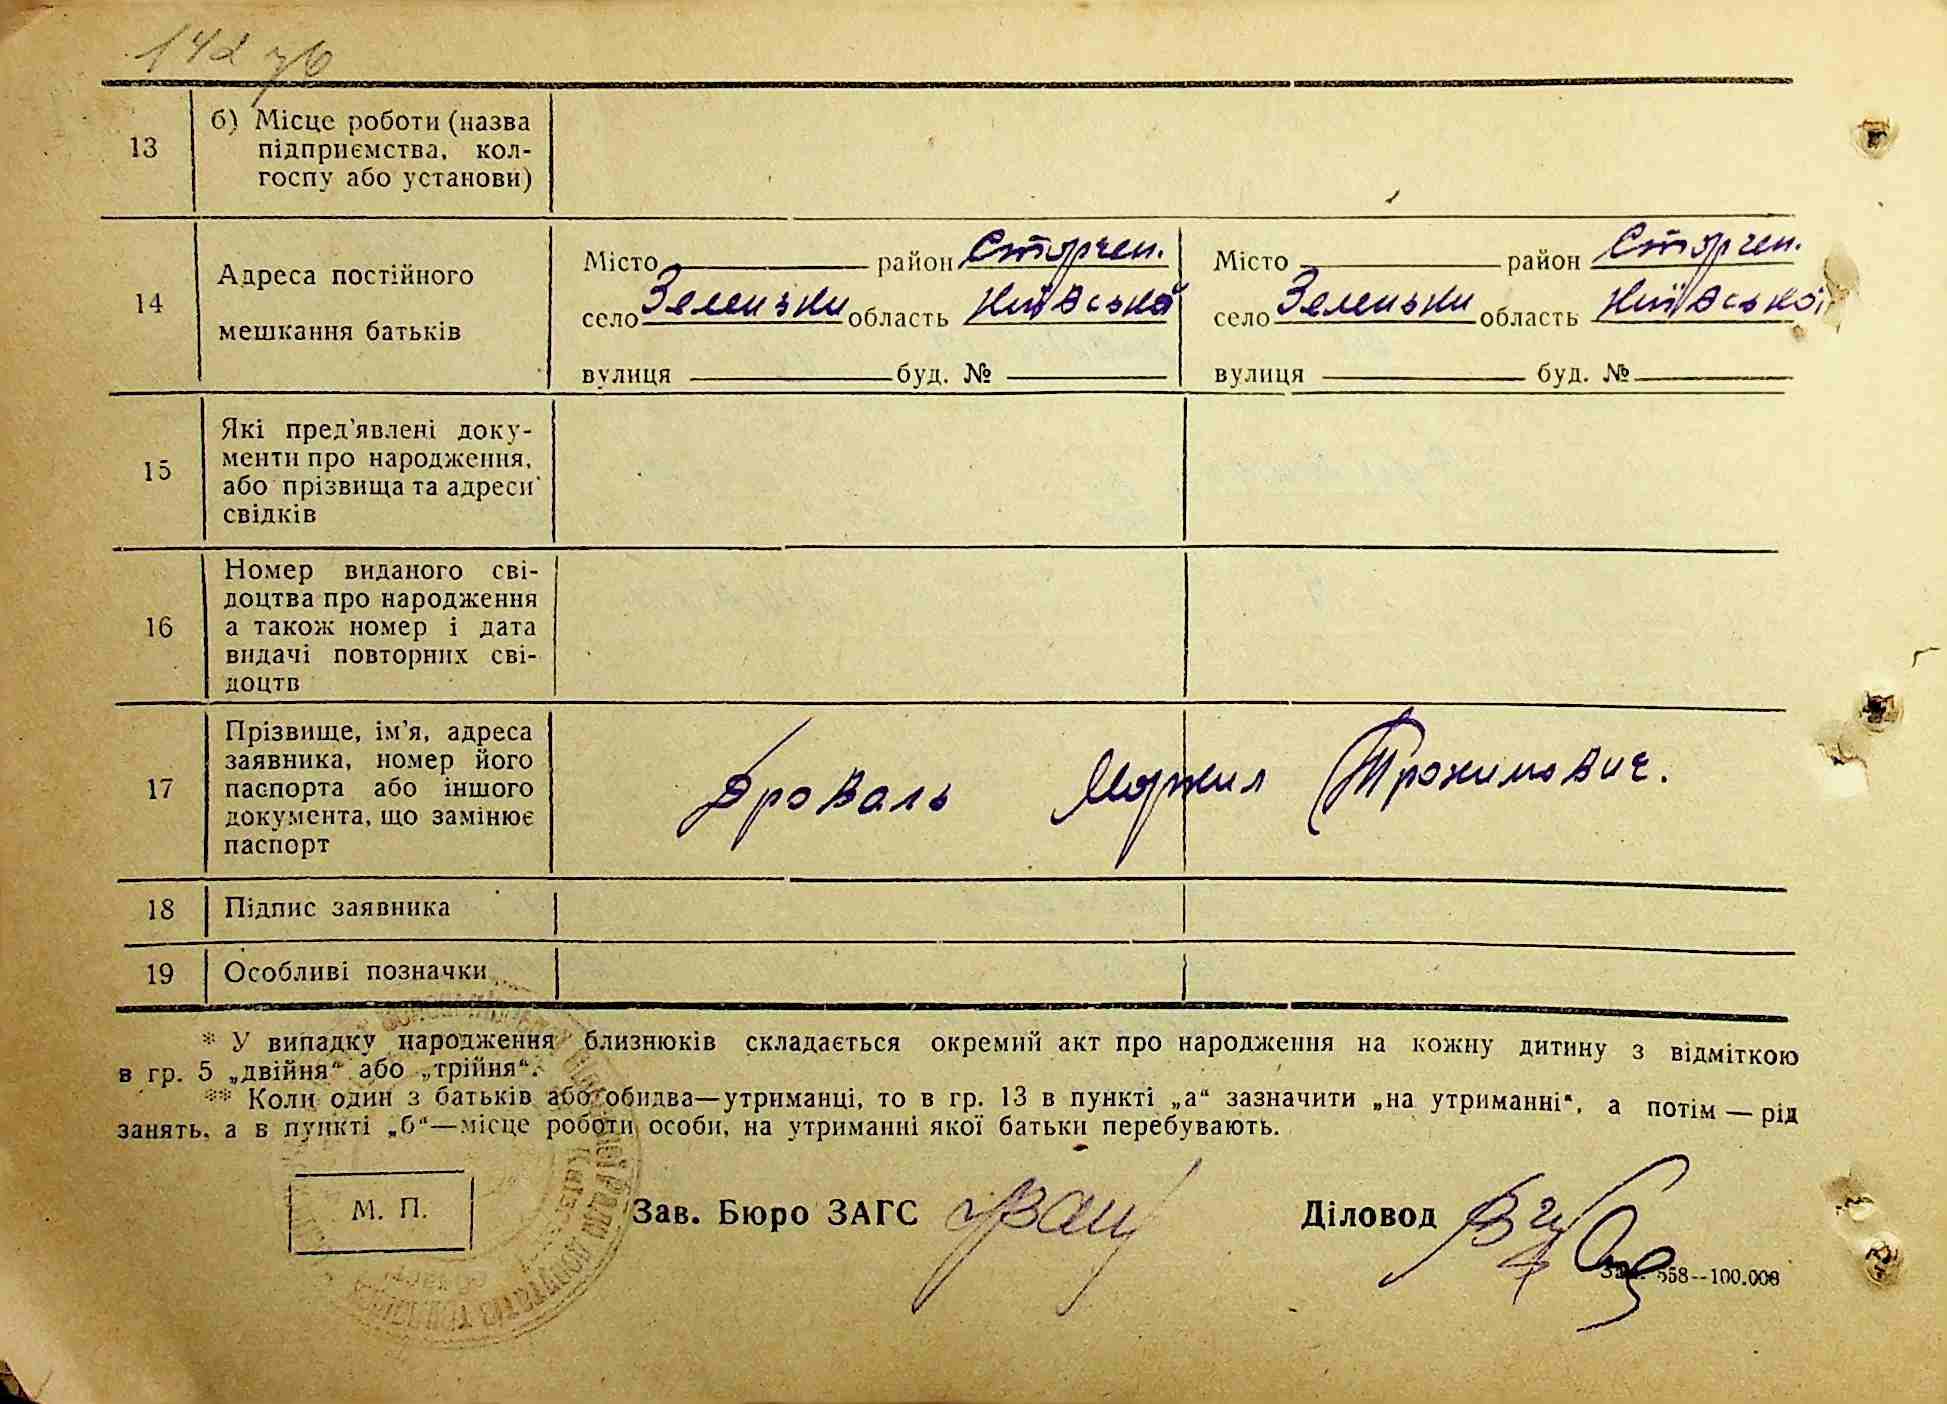 142 зв
13
б) Місце роботи (назва
підприємства, кол-
госпу або установи)
14
Адреса постійного
мешкання батьків
Місто район Сторчен.
село Зеленьки область Київська
вулиця буд. №
Місто район Сторчен.
село Зеленьки область Київської
вулиця буд. №
15
Які пред'явлені доку-
менти про народження,
або прізвища та адреси
свідків
16
Номер виданого сві-
доцтва про народження
а також номер і дата
видачі повторних сві-
доцтв
17
Прізвище, ім'я, адреса
заявника, номер його
паспорта або іншого
документа, що замінює
паспорт
Трохимович.
18
Підпис заявника
19
Особливі позначки
* У випадку народження близнюків складається окремий акт про народження на кожну дитину з відміткою
в гр. 5 „двійня“ або „трійня“.
** Коли один з батьків або обидва—утриманці, то в гр. 13 в пункті „а“ зазначити „на утриманні“, а потім — рід
занять, а в пункті „б“—місце роботи особи, на утриманні якої батьки перебувають.
М. П.
Зав. Бюро ЗАГС
Діловод
558--100.000